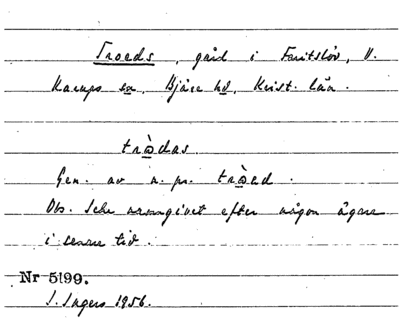 Troeds, gård i Faritslöv, V.
Karups sn, Bjäre hd, Krist. län.
trò̱das.
Gen. av n. pr. trò̱ed.
Obs. Icke namngivet efter någon ägare
i senare tid.
Nr 5199.
I. Ingers 1956.